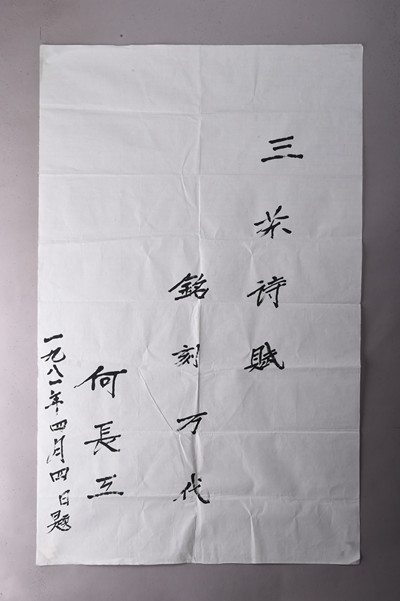 三苏诗赋
銘刻万代
何長工
一九八一年四月四日题